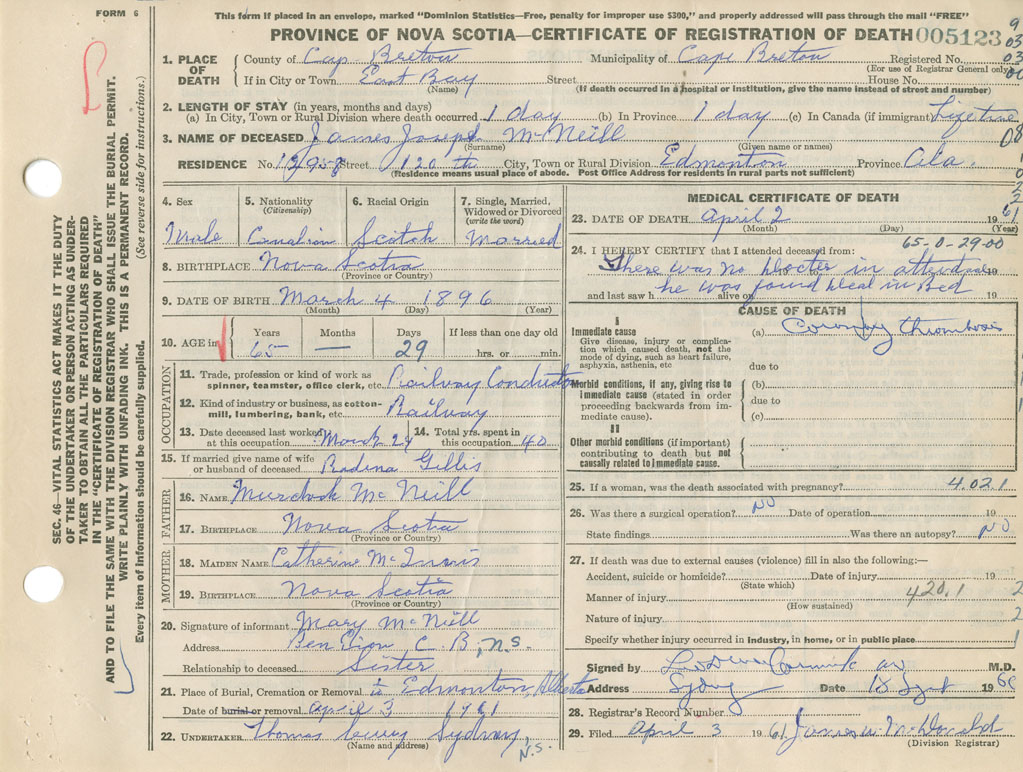 FORM 6
This form if placed in an envelope, marked "Dominion Statistics—Free, penalty for improper use $300," and properly addressed will pass through the mail "FREE"
PROVINCE OF NOVA SCOTIA—CERTIFICATE OF REGISTRATION OF DEATH 005123
1. PLACE OF DEATH County of Cap Breton Municipality of Cape Breton Registered No.
(For use of Registrar General only)
If in City or Town East Bay Street House No.
(Name) (If death occurred in a hospital or institution, give the name instead of street and number)
2. LENGTH OF STAY (in years, months and days)
(a) In City, Town or Rural Division where death occurred 1 day (b) In Province 1 day (c) In Canada (if immigrant) Life time
3. NAME OF DECEASED James Joseph McNeill
(Surname) (Given name or names)
RESIDENCE No. 12958 Street 120 th City, Town or Rural Division Edmonton Province Alta.
(Residence means usual place of abode. Post Office Address for residents in rural parts not sufficient)
SEC. 46—VITAL STATISTICS ACT MAKES IT THE DUTY
OF THE UNDERTAKER OR PERSON ACTING AS UNDER-
TAKER TO OBTAIN ALL THE PARTICULARS REQUIRED
IN THE "CERTIFICATE OF REGISTRATION OF DEATH"
AND TO FILE THE SAME WITH THE DIVISION REGISTRAR WHO SHALL ISSUE THE BURIAL PERMIT.
WRITE PLAINLY WITH UNFADING INK. THIS IS A PERMANENT RECORD.
Every item of information should be carefully supplied. (See reverse side for instructions.)
4. Sex 5. Nationality (Citizenship) 6. Racial Origin 7. Single, Married, Widowed or Divorced (write the word)
Male Canadian Scotch Married
8. BIRTHPLACE Nova Scotia
(Province or Country)
9. DATE OF BIRTH March 4 1896
(Month) (Day) (Year)
10. AGE in Years Months Days If less than one day old
65 — 29 hrs. or min.
OCCUPATION
11. Trade, profession or kind of work as
spinner, teamster, office clerk, etc. Railway Conductor
12. Kind of industry or business, as cotton-
mill, lumbering, bank, etc. Railway
13. Date deceased last worked at this occupation March 29 14. Total yrs. spent in this occupation 40
15. If married give name of wife
or husband of deceased Gillis
FATHER
16. NAME Murdock McNeill
17. BIRTHPLACE Nova Scotia
(Province or Country)
MOTHER
18. MAIDEN NAME Catherine McInnis
19. BIRTHPLACE Nova Scotia
(Province or Country)
20. Signature of informant Mary McNeill
Address Ben Eion C.B, N.S.
Relationship to deceased Sister
21. Place of Burial, Cremation or Removal to Edmonton, Alberta
Date of burial or removal April 3 1961
22. UNDERTAKER Thomas Curry Sydney, N.S.
(Name and address)
MEDICAL CERTIFICATE OF DEATH
23. DATE OF DEATH April 2 1961
(Month) (Day) (Year)
65-0-29-00
24. I HEREBY CERTIFY that I attended deceased from:
There was no Docter in attendance 19
he was found dead in Bed
and last saw h alive on 19
CAUSE OF DEATH
I
Immediate cause (a) Coronary thrombosis
Give disease, injury or complica-
tion which caused death, not the
mode of dying, such as heart failure,
asphyxia, asthenia, etc
due to
Morbid conditions, if any, giving rise to (b)
immediate cause (stated in order due to
proceeding backwards from im- (c)
mediate cause).
II
Other morbid conditions (if important)
contributing to death but not
causally related to immediate cause.
25. If a woman, was the death associated with pregnancy? 4.02.1
26. Was there a surgical operation? NO Date of operation 19
State findings Was there an autopsy? NO
27. If death was due to external causes (violence) fill in also the following:—
Accident, suicide or homicide? Date of injury 19
(State which)
Manner of injury 420.1 2
(How sustained)
Nature of injury 2
Specify whether injury occurred in industry, in home, or in public place 1
Signed by M.D.
Address Sydney Date 18 Sept 19
28. Registrar's Record Number 5
29. Filed April 3 1961 James W McDonald
(Division Registrar)